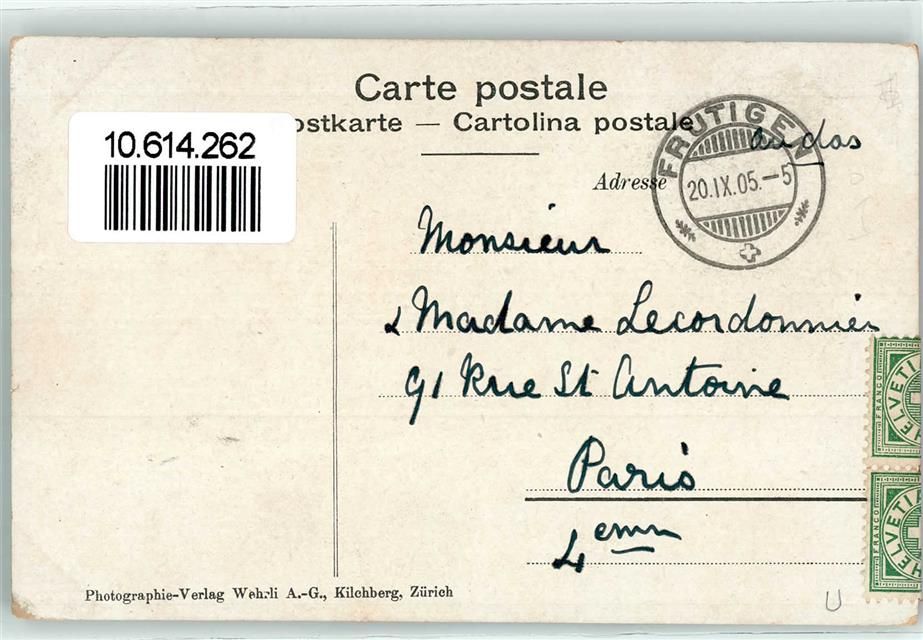 Carte postale
ostkarte — Cartolina postale
10.614.262
FRUTIGEN
20.IX.05.-5
Adresse
Monsieur
& Madame Lecordonnier
91 Rue St Antoine
Paris
4eme
FRANCO HELVETI
FRANCO HELVETI
Photographie-Verlag Wehrli A.-G., Kilchberg, Zürich
U